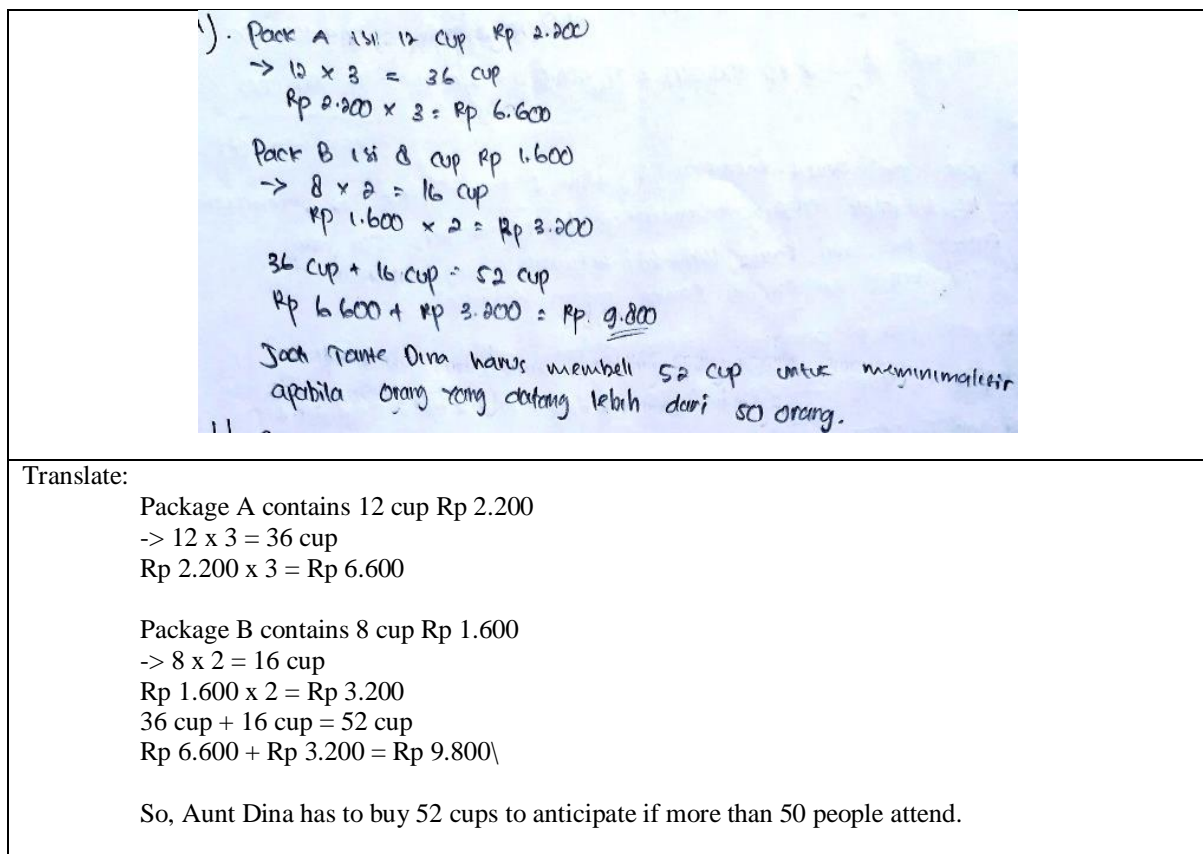 1). Pack A isi 12 cup Rp 2.200
→ 12 x 3 = 36 cup
Rp 2.200 x 3 = Rp 6.600
Pack B isi 8 cup Rp 1.600
→ 8 x 2 = 16 cup
Rp 1.600 x 2 = Rp 3.200
36 cup + 16 cup = 52 cup
Rp 6 600 + Rp 3.200 = Rp. 9.800
Jadi Tante Dina harus membeli 52 cup untuk meminimalisir
apabila orang yang datang lebih dari 50 orang.
Translate:
Package A contains 12 cup Rp 2.200
-> 12 x 3 = 36 cup
Rp 2.200 x 3 = Rp 6.600
Package B contains 8 cup Rp 1.600
-> 8 x 2 = 16 cup
Rp 1.600 x 2 = Rp 3.200
36 cup + 16 cup = 52 cup
Rp 6.600 + Rp 3.200 = Rp 9.800\
So, Aunt Dina has to buy 52 cups to anticipate if more than 50 people attend.